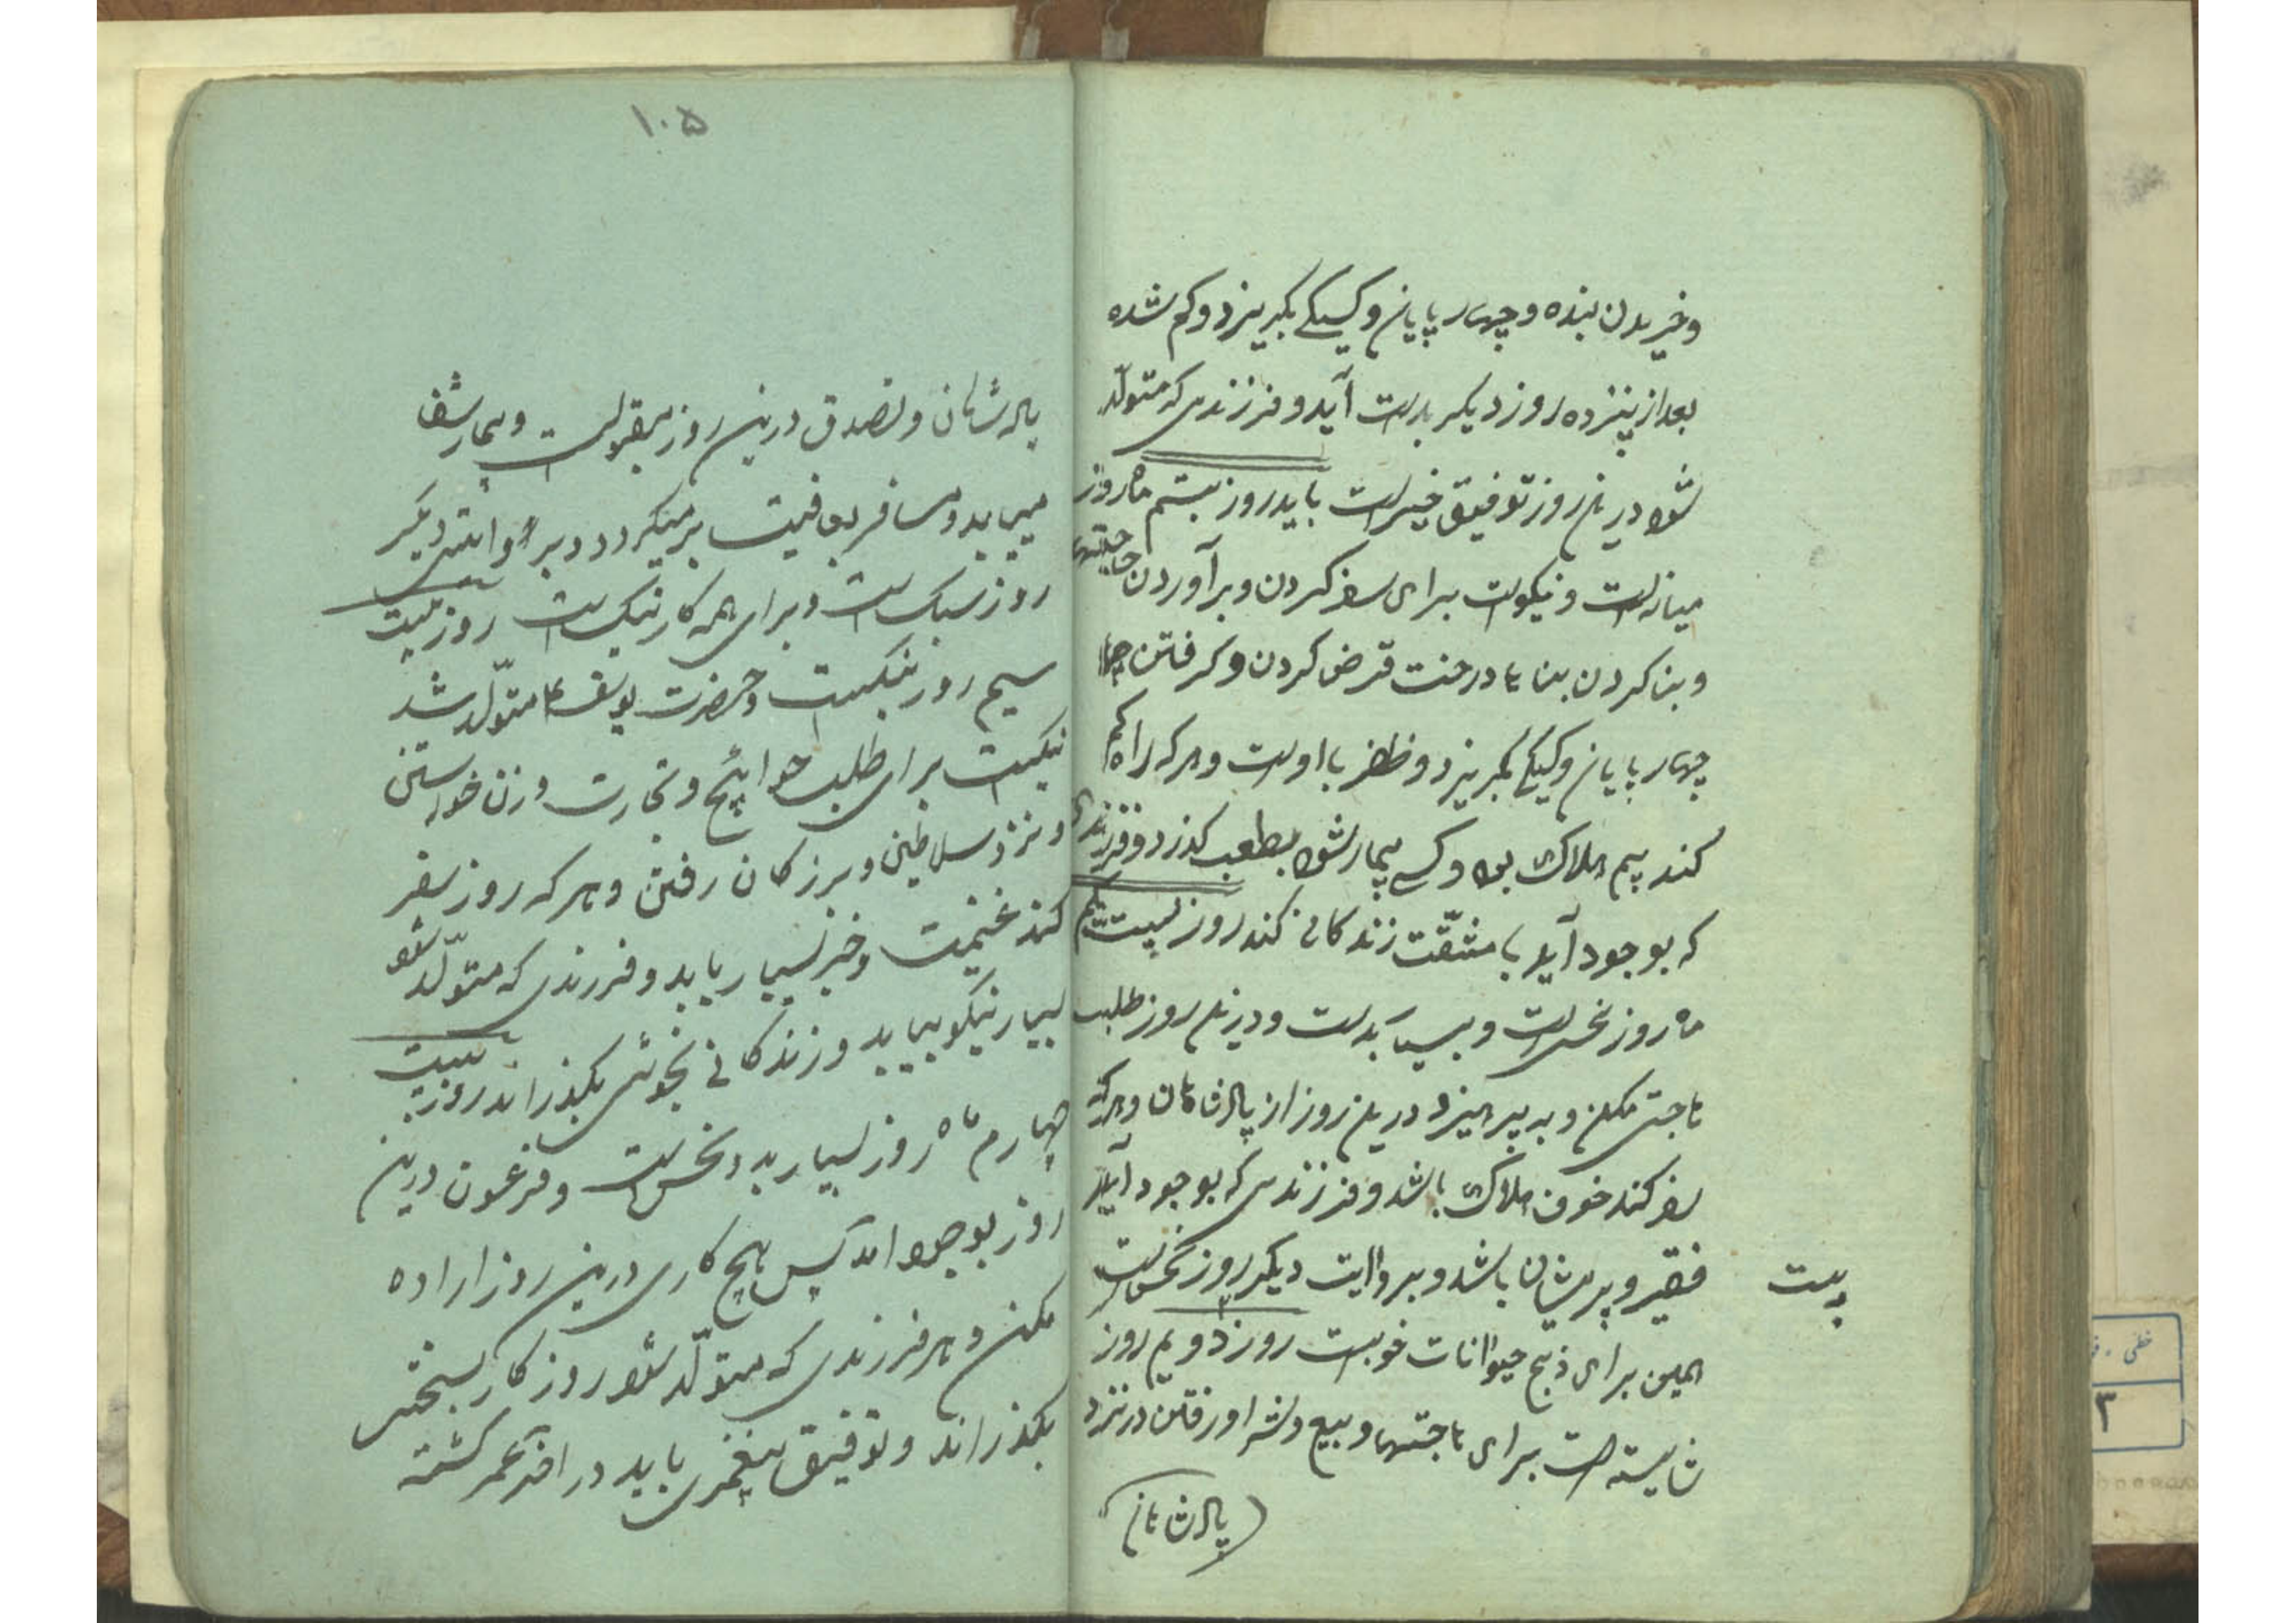 وخریدن بنده و چهار پایان و کسیکه بگریزد و گم شده
بعد از پانزده روز دیگر بدست آید و فرزندی که متولّد
شود درین روز توفیق خیرات یابد روز بیستم ماه روز
میانه است و نیکوست برای سفر کردن و برآوردن حاجتها
و بنا کردن بناها درخت قرض کردن و گرفتن
چهار پایان و کسیکه بگریزد و ظفر با اوست و هرکه راه گم
کند بیم هلاک بود و کسی بیمار شود بصعب گذرد و فرزندی
که بوجود آید با مشقّت زندگانی کند روز بیست یکم
ماه روز نحس است و بسیار بد است و درین روز طلب
حاجتی مکن و به پرهیزد درین روز از پادشاهان و هرکه
سفر کند خوف هلاک باشد و فرزندی که بوجود آید
فقیر و پریشان باشد و بروایت دیگر روز نحس است
بیست
همین برای ذبح حیوانات خوبست روز دویم روز
شایسته است برای حاجتها و بیع و شرا و رفتن در نزد
پادشاهان
۱۰۵
پادشاهان و تصدق درین روز مقبولست و بیمار شفا
مییابد و مسافر بعافیت بر میگردد و بروایتی دیگر
روز سبک است و برای همه کار نیک است روز بیست
سیم روز نیکست و حضرت یوسف ع متولّد شد
نیکست برای طلب حوائج و تجارت و زن خواستن
و نزد سلاطین و بزرگان رفتن و هر که روز سفر
کند غنیمت و خیر بسیار یابد و فرزندی که متولّد شود
بسیار نیکو بیاید و زندگانی بخوشی بگذراند روز بیست
چهارم ماه روز بسیار بد و نحس است و فرعون درین
روز بوجود آمد پس هیچ کاری درین روز اراده
مکن و هر فرزندی که متولّد شود روزگار بسختی
بگذراند و توفیق نیابد در آخر عمر کشته
خطی
۳